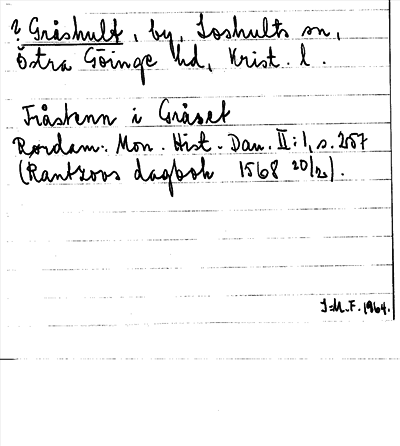 ? Gråshult, by, Loshults sn,
Östra Göinge hd, Krist. l.
Fråstenn i Gråset
Rørdam. Mon. Hist. Dan. II:1, s. 257
(Rantzovs dagbok 1568 20/2).
I=M.F. 1964.